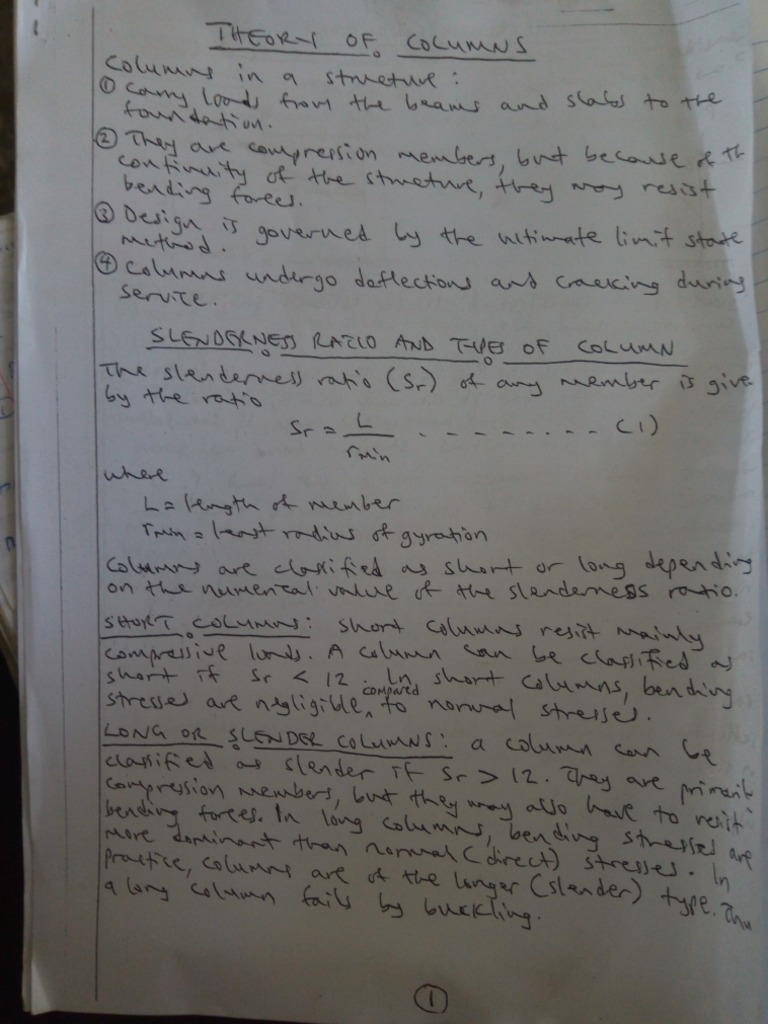 THEORY OF COLUMNS
Columns in a structure:
① Carry loads from the beams and slabs to the
foundation.
② They are compression members, but because of th
continuity of the structure, they may resist
bending forces.
③ Design is governed by the ultimate limit state
method.
④ Columns undergo deflections and cracking during
service.
SLENDERNESS RATIO AND TYPES OF COLUMN
The slenderness ratio (Sr) of any member is give
by the ratio
Sr = L / rmin - - - - - - - - - (1)
where
L = length of member
rmin = least radius of gyration
Columns are classified as short or long depending
on the numerical value of the slenderness ratio.
SHORT COLUMNS: short columns resist mainly
compressive loads. A column can be classified as
short if Sr < 12. In short columns, bending
stresses are negligible compared to normal stresses.
LONG OR SLENDER COLUMNS: a column can be
classified as slender if Sr > 12. They are primaril
compression members, but they may also have to resist
bending forces. In long columns, bending stresses are
more dominant than normal (direct) stresses. In
practice, columns are of the longer (slender) type. Thu
a long column fails by buckling.
①